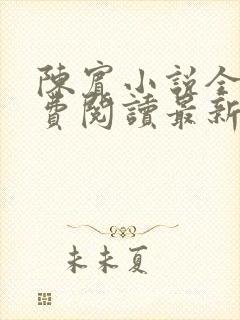 陳實小說全
費閱讀最新
未未夏